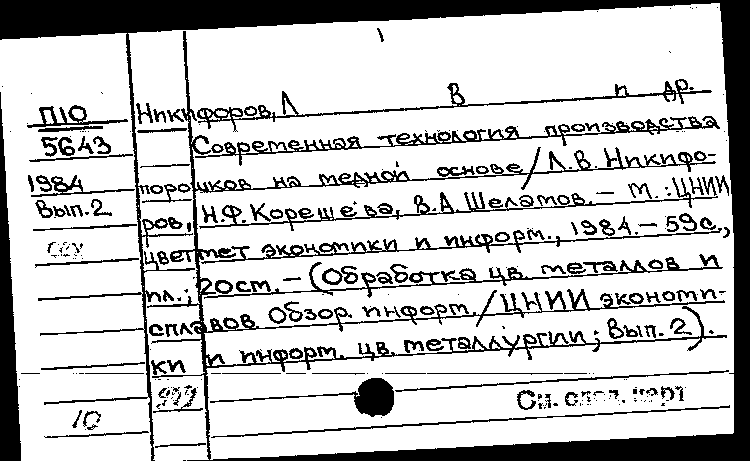 П10 Никифоров, Л В и др.
5643 Современная технология производства
1984 порошков на медной основе / Л.В. Никифо-
Вып.2 ров, Н.Ф. Корешева, В.А. Шеламов. – М.: ЦНИИ
цветмет экономики и информ., 1984. – 59 с.,
ил.; 20 см. – (Обработка цв. металлов и
сплавов. Обзор. информ. / ЦНИИ экономи-
ки и информ. цв. металлургии; Вып. 2).
См. след. карт
10